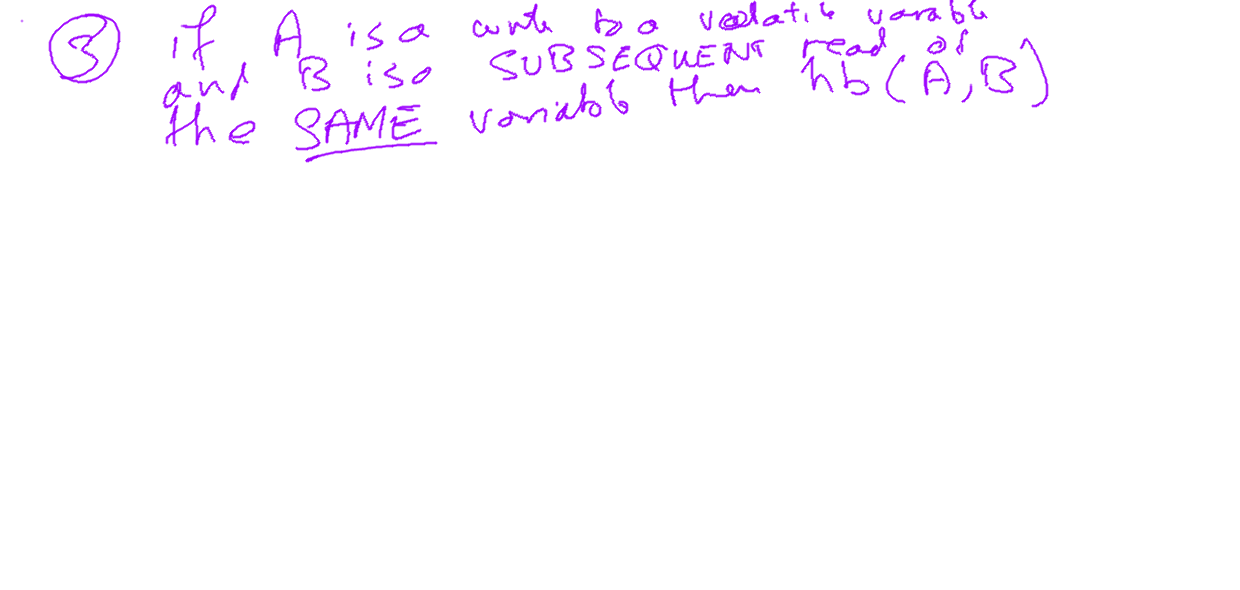 ③ if A is a write to a volatile variable
and B is a SUBSEQUENT read of
the SAME variable then hb(A,B)